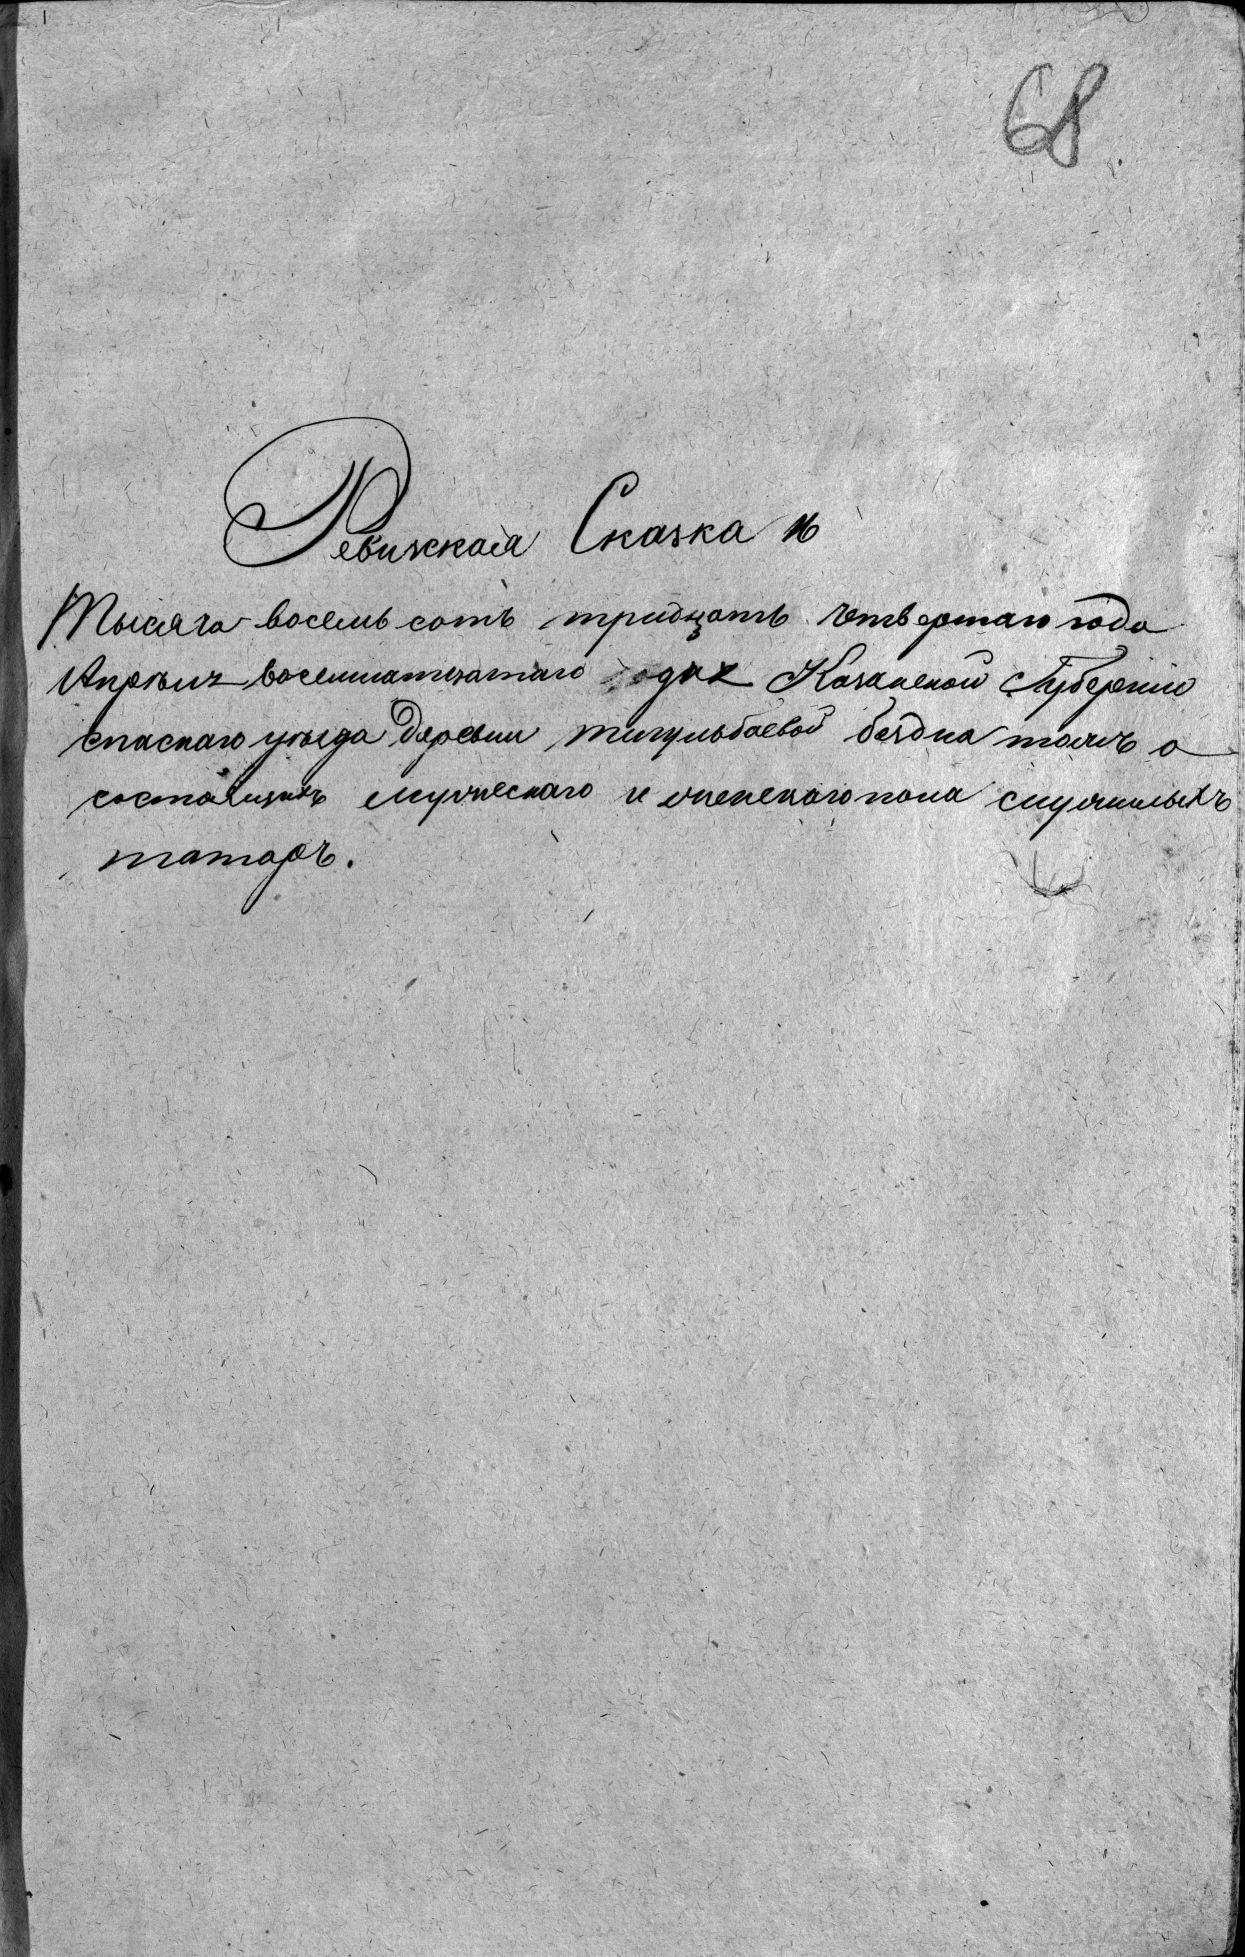 68
Ревижская Сказка №
Тысяча восемь сотъ тридцать четвертаго года
Апреля восемнатцатаго дня Казанской Губернии
спаскаго уезда Деревни тигульбаевой бездна тожъ о
состоящихъ мужескаго и женскаго пола служилыхъ
татаръ.